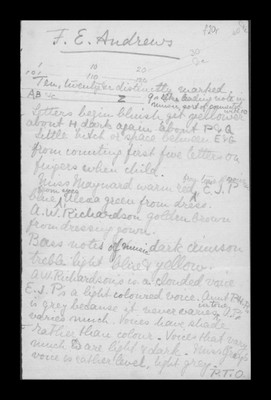 F. E. Andrews
10 20
110
101
Ten, twenty are distinctly marked,
AB Z G is the leading note in
minor sort of
Letters begin bluish, get yellower
about H dark again about P & Q
Little hitch or space between E & G
from counting first five letters on
fingers when child.
Miss Maynard warm red, E.J.P.
blue, green from dress.
A.W. Richardson golden brown
from dressing gown.
Bass notes of music dark crimson
treble light blue & yellow.
A W Richardson's is a clouded voice
E.J.P's a light coloured voice. Aunt
is grey because it never varies. E.J.P's
varies much. Voices have shade
rather than colour. Voices that vary
much are light & dark. Nurse
voice is rather level, light grey.
P.T.O.